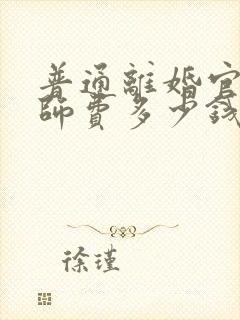 普通離婚官
師費多少錢
徐瑾